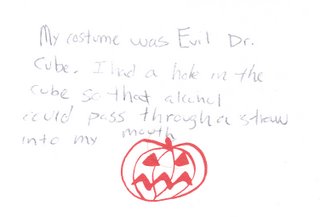 My costume was Evil Dr.
Cube. I had a hole in the
cube so that alcohol
could pass through a straw
into my mouth